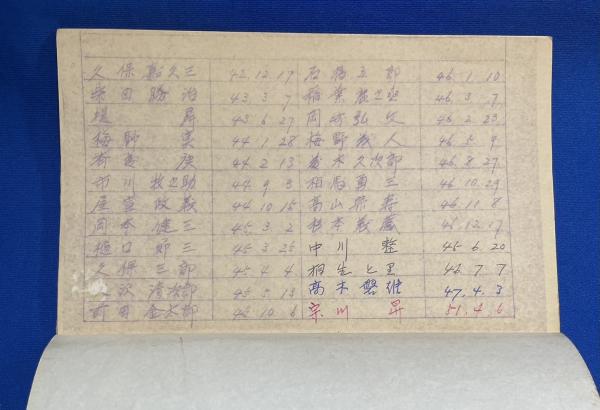 久保 久三 42.12.17 石橋五郎 46.1.10
柴田勝治 43.3.7 稲葉 46.3.7
堤 昇 43.6.27 岡崎弘文 46.2.23
梅野 実 44.1.28 梅野義人 46.5.9
44.2.13 茂木久次郎 46.8.27
市川牧之助 44.9.3 相馬勇三 46.10.29
屋宜政義 44.10.15 高山 寿 46.11.8
岡本健三 45.3.2 根本義蔵 46.12.17
樋口 三 45.3.25 中川 整 45.6.20
久保三郎 45.4.4 桐生と里 46.7.7
沢清次郎 45.5.13 高木磐雄 47.4.3
前田金太郎 45.10.8 宗川 昇 51.4.6